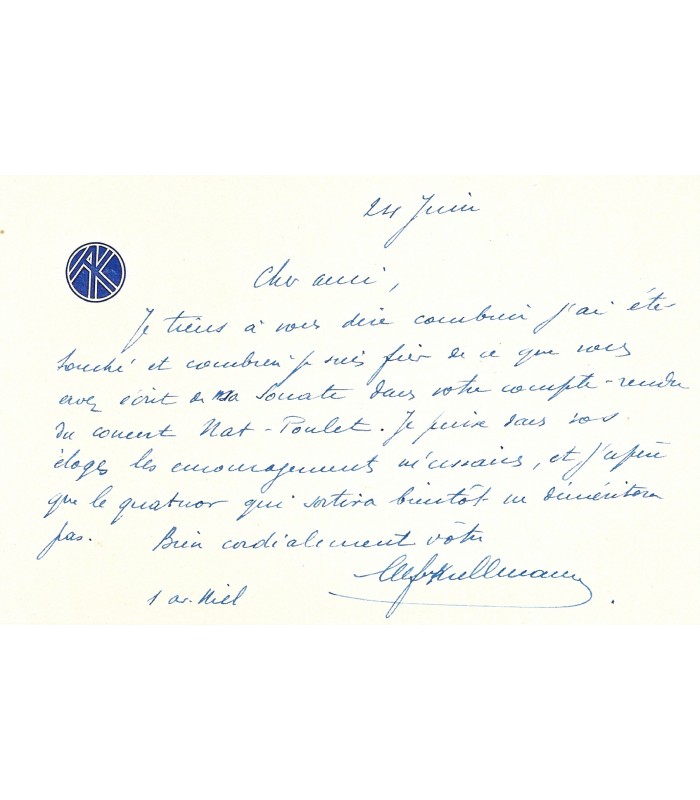 24 Juin
AK
Cher ami,
Je tiens à vous dire combien j'ai été
touché et combien je suis fier de ce que vous
avez écrit de ma Sonate dans votre compte-rendu
du concert Nat-Poulet. Je puise dans vos
éloges les encouragements nécessaires, et j'espère
que le quatuor qui sortira bientôt ne déméritera
pas. Bien cordialement vôtre
Alf Kullmann
1 av. Niel